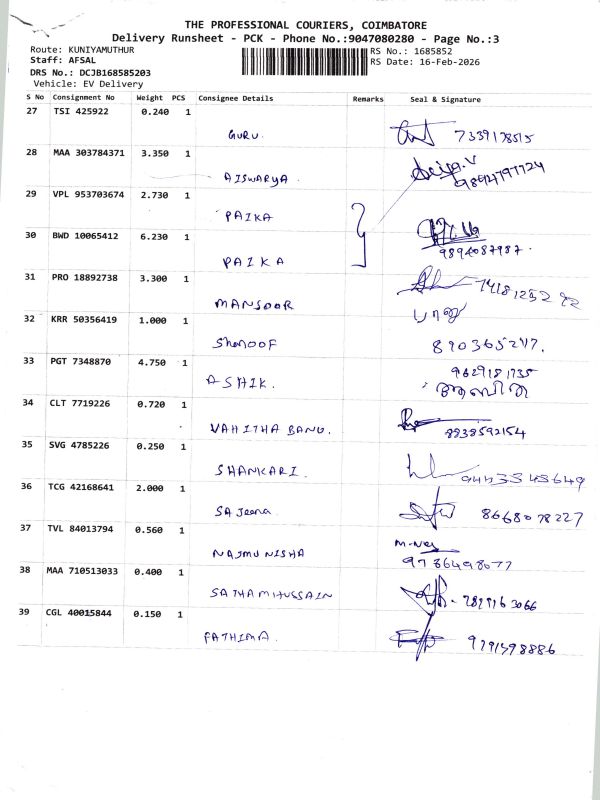 THE PROFESSIONAL COURIERS, COIMBATORE
Delivery Runsheet - PCK - Phone No.:9047080280 - Page No.:3
Route: KUNIYAMUTHUR RS No.: 1685852
Staff: AFSAL RS Date: 16-Feb-2026
DRS No.: DCJB168585203
Vehicle: EV Delivery
S No Consignment No Weight PCS Consignee Details Remarks Seal & Signature
27 TSI 425922 0.240 1
GURU. 7339178515
28 MAA 303784371 3.350 1
AISWARYA. 9894797724
29 VPL 953703674 2.730 1
PAIKA
30 BWD 10065412 6.230 1
PAIKA 9894087987.
31 PRO 18892738 3.300 1
MANSOOR
32 KRR 50356419 1.000 1
Shanoof 890365247.
33 PGT 7348870 4.750 1
ASHIK. 9629181735
34 CLT 7719226 0.720 1
VAHITHA BANU. 8838592154
35 SVG 4785226 0.250 1
SHANKARI. 9443545649
36 TCG 42168641 2.000 1
SAJeena. 8668078227
37 TVL 84013794 0.560 1
NAJMUNISHA 9786498077
38 MAA 710513033 0.400 1
SATHAMHUSSAIN
39 CGL 40015844 0.150 1
FATHIMA. 9791598886